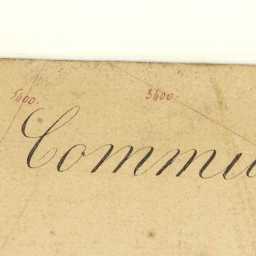 5600. 5600.
Commu